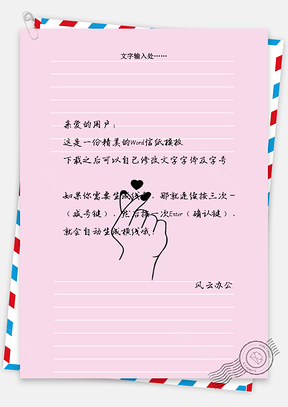 文字输入处……
亲爱的用户：
这是一份精美的Word信纸模板
下载之后可以自己修改文字字体及字号
如果你需要生成线条，那就连续按三次－
（减号键），然后按一次Enter（确认键），
就会自动生成横线哦！
风云办公